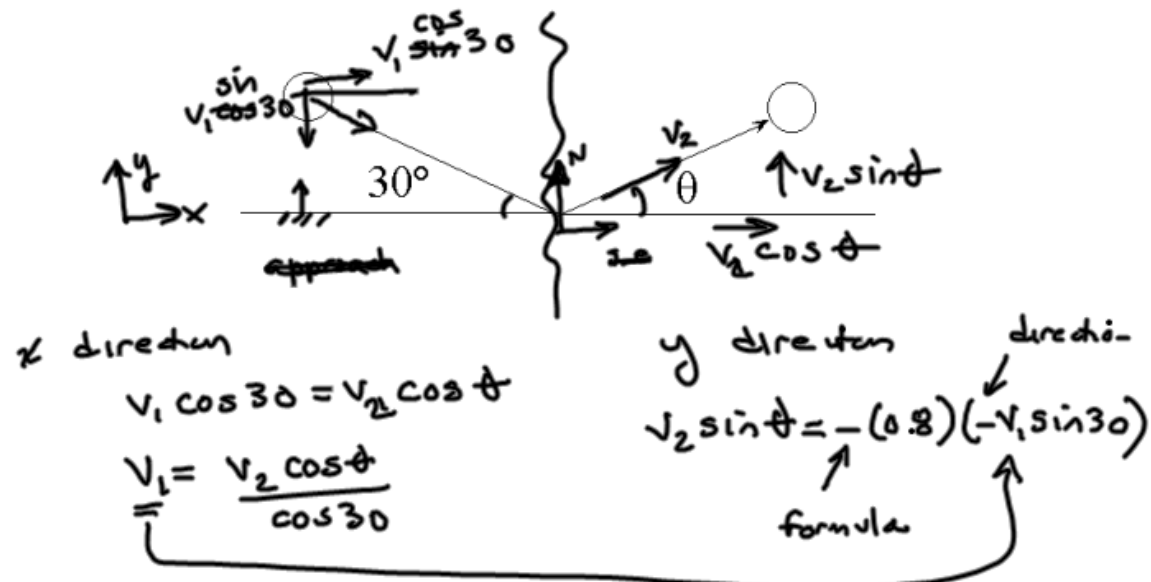 cos
V₁ sin 30
sin
V₁ cos30
y
x
30°
N
V₂
θ
V₂ sinθ
V₂ cos θ
approach
x direction
V₁ cos30 = V₂ cos θ
V₁ = V₂ cosθ / cos30
y direction
direction
V₂ sinθ = -(0.8)(-V₁ sin30)
formula